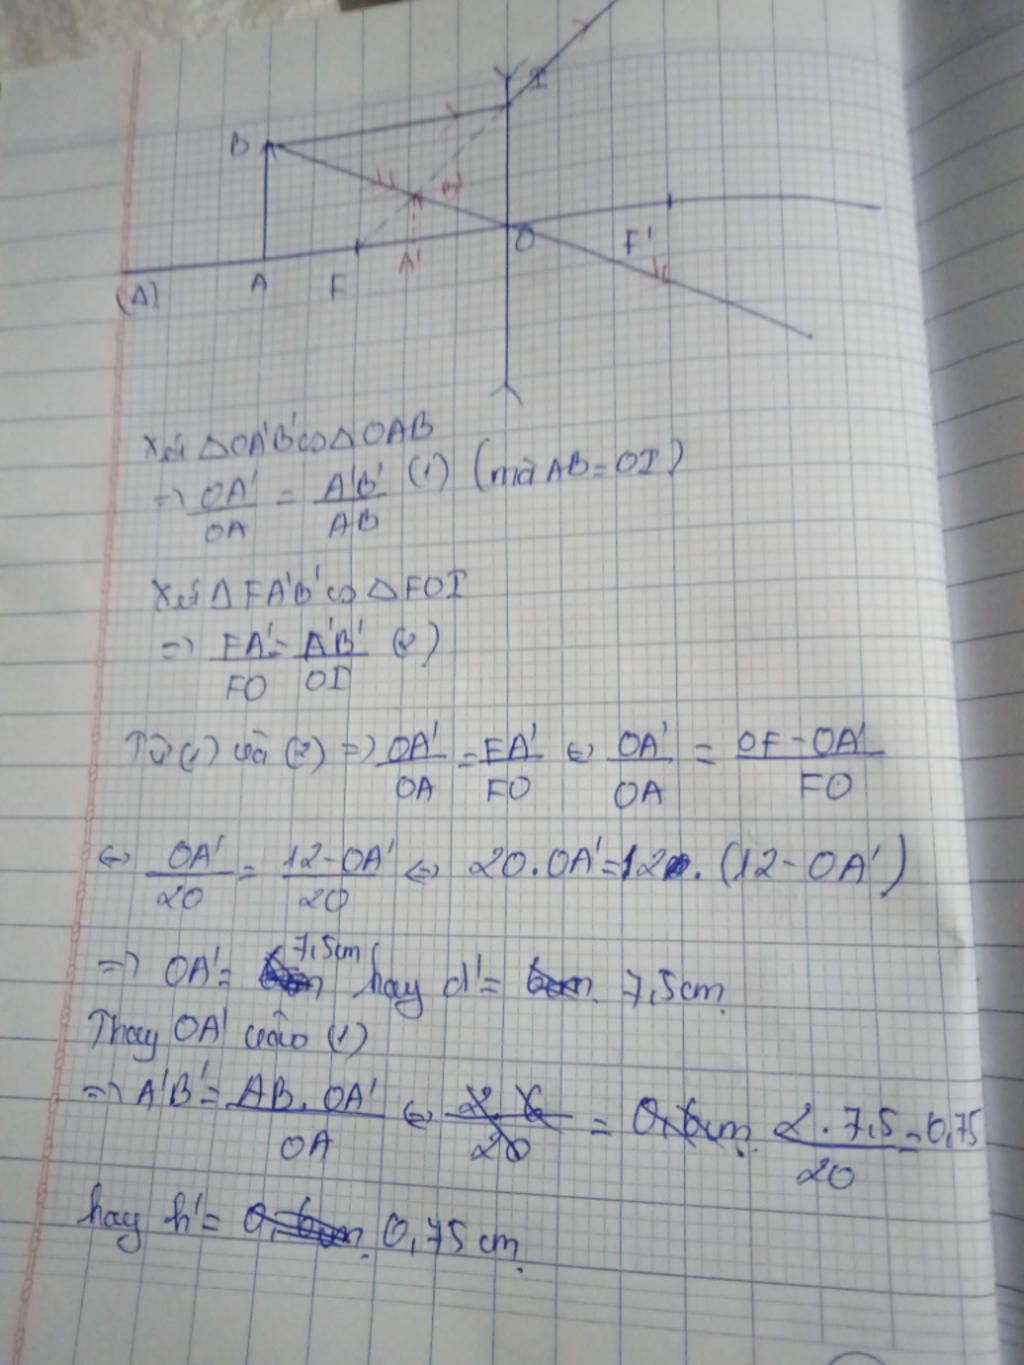 I
B
B'
O
F'
A'
(Δ)
A
F
Xét ΔOA'B' ∽ ΔOAB
=> OA'/OA = A'B'/AB (1) (mà AB = OI)
Xét ΔFA'B' ∽ ΔFOI
=> FA'/FO = A'B'/OI (2)
Từ (1) và (2) => OA'/OA = FA'/FO ⇔ OA'/OA = OF - OA'/FO
⇔ OA'/20 = 12 - OA'/20 ⇔ 20.OA' = 12.(12 - OA')
=> OA' = 7,5cm hay d' = 7,5cm.
Thay OA' vào (1)
=> A'B' = AB.OA'/OA ⇔ 2.6/20 = 0,6cm. 2.7,5/20 = 0,75
hay h' = 0,75 cm.